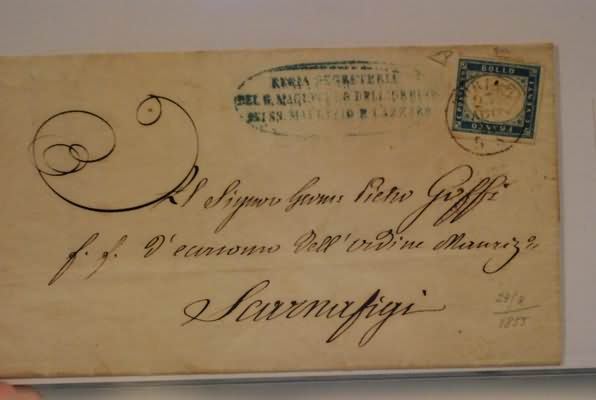 REGIA SEGRETERIA
DEL G. MAGISTERO DELL'ORDINE
DEI SS. MAURIZIO E LAZZARO
BOLLO
FRANCO
TORINO
Al Signor Pietro Goffi
f. f. d'economo dell'ordine Mauriz.o
Scarnafigi
29/8
1855